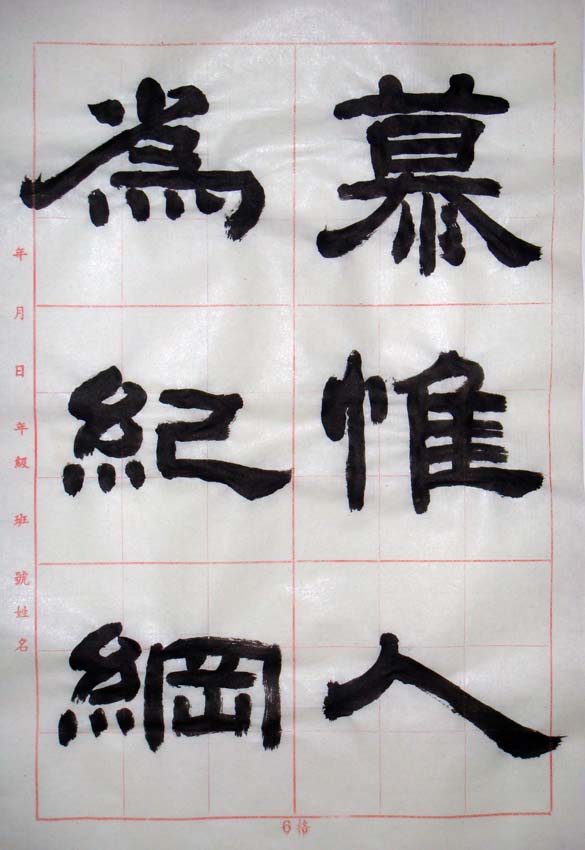 慕惟人
為紀綱
年 月 日 年級 班 號姓名
6